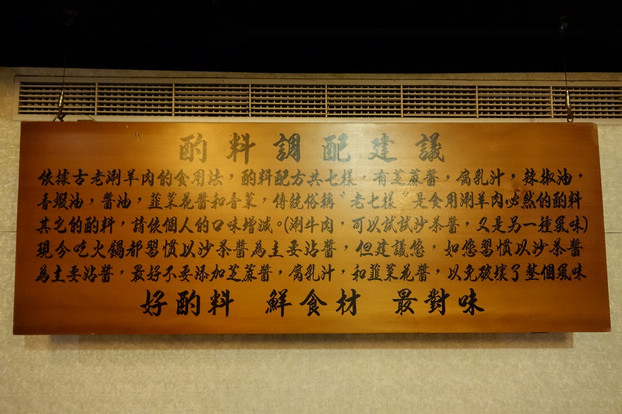 酌料調配建議
依據古老涮羊肉的食用法，酌料配方共七樣，有芝蔴醬，腐乳汁，辣椒油，
香蝦油，醬油，韮菜花醬和香菜，傳統俗稱“老七樣”是食用涮羊肉必然的酌料
其它的酌料，請依個人的口味增減。(涮牛肉 可以試試沙茶醬，又是另一種風味)
現今吃火鍋都習慣以沙茶醬為主要沾醬，但建議您，如您習慣以沙茶醬
為主要沾醬，最好不要添加芝蔴醬，腐乳汁，和韮菜花醬，以免破壞了整個風味
好酌料 鮮食材 最對味